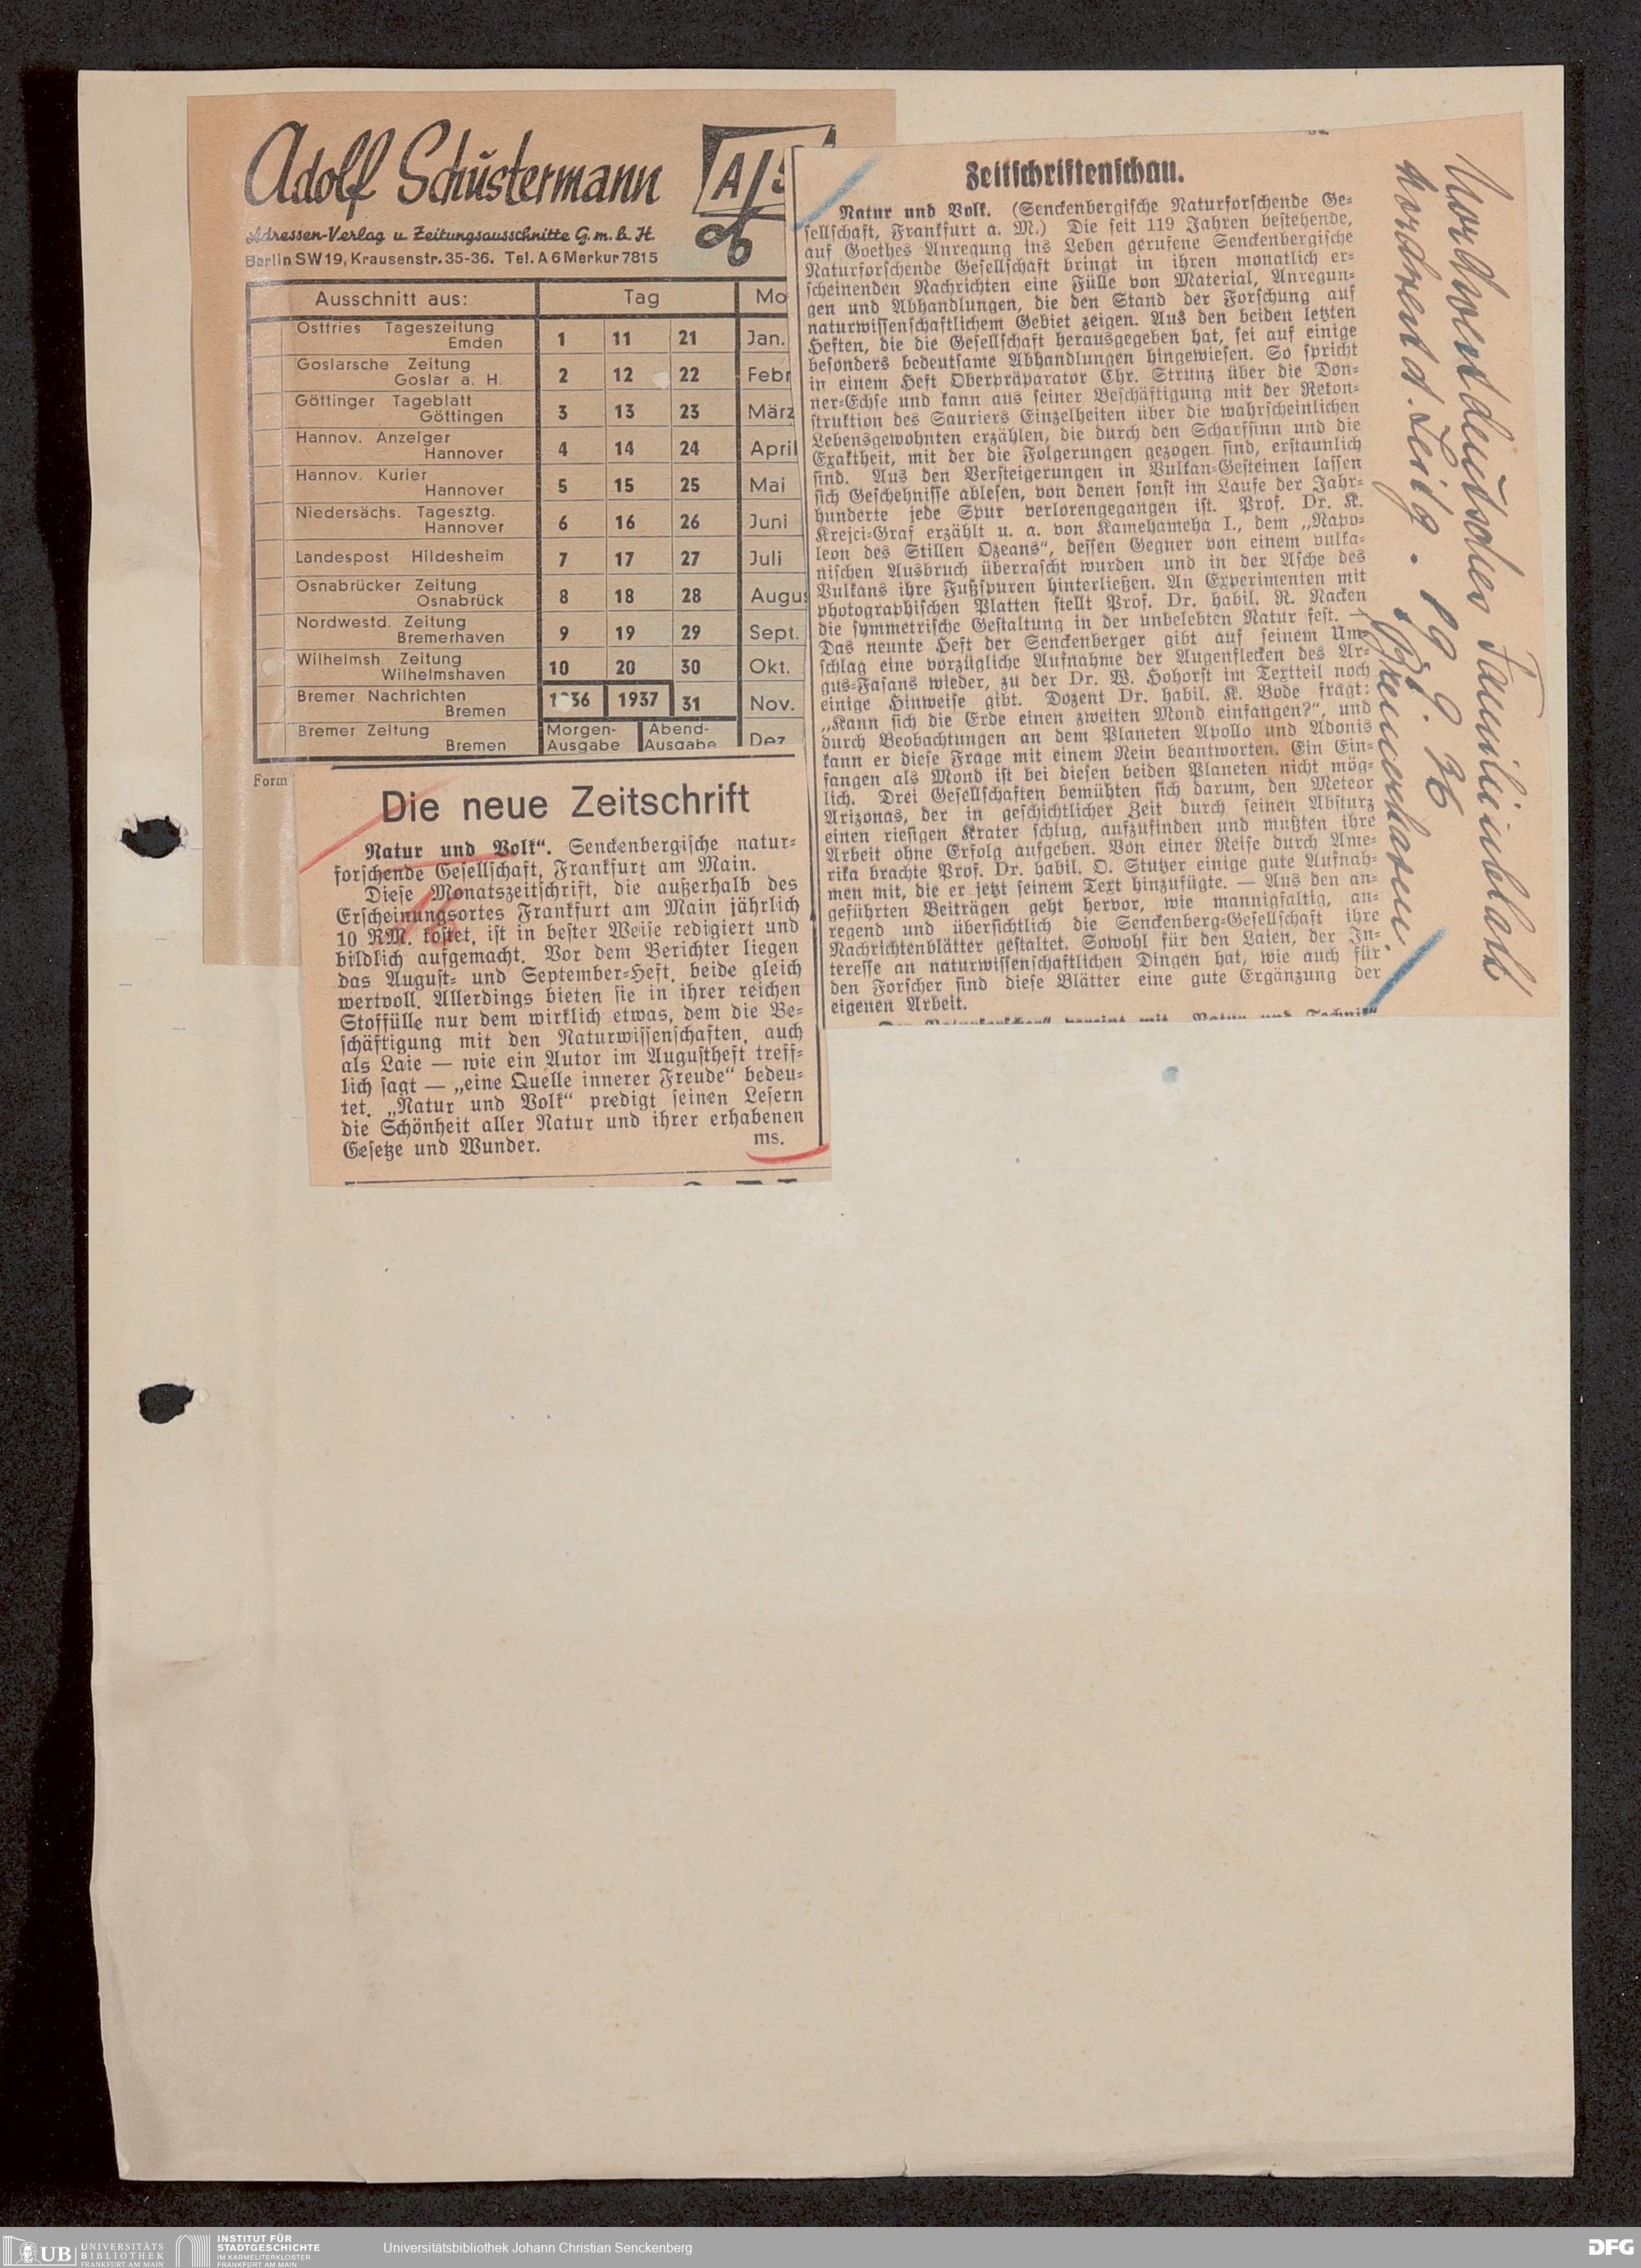 Adolf Schustermann
Adressen-Verlag u. Zeitungsausschnitte G.m.b.H.
Berlin SW19, Krausenstr. 35-36. Tel. A 6 Merkur 7815
A/S
Ausschnitt aus: Tag Mo
Ostfries Tageszeitung
Emden 1 11 21 Jan.
Goslarsche Zeitung
Goslar a. H. 2 12 22 Febr
Göttinger Tageblatt
Göttingen 3 13 23 März
Hannov. Anzeiger
Hannover 4 14 24 April
Hannov. Kurier
Hannover 5 15 25 Mai
Niedersächs. Tagesztg.
Hannover 6 16 26 Juni
Landespost Hildesheim 7 17 27 Juli
Osnabrücker Zeitung
Osnabrück 8 18 28 Augus
Nordwestd. Zeitung
Bremerhaven 9 19 29 Sept.
Wilhelmsh Zeitung
Wilhelmshaven 10 20 30 Okt.
Bremer Nachrichten
Bremen 1936 1937 31 Nov.
Bremer Zeitung
Bremen Morgen-Ausgabe Abend-Ausgabe Dez
Form
Die neue Zeitschrift
Natur und Volk“. Senckenbergische natur-
forschende Gesellschaft, Frankfurt am Main.
Diese Monatszeitschrift, die außerhalb des
Erscheinungsortes Frankfurt am Main jährlich
10 RM. kostet, ist in bester Weise redigiert und
bildlich aufgemacht. Vor dem Berichter liegen
das August- und September-Heft, beide gleich
wertvoll. Allerdings bieten sie in ihrer reichen
Stoffülle nur dem wirklich etwas, dem die Be-
schäftigung mit den Naturwissenschaften, auch
als Laie — wie ein Autor im Augustheft treff-
lich sagt — „eine Quelle innerer Freude“ bedeu-
tet. „Natur und Volk“ predigt seinen Lesern
die Schönheit aller Natur und ihrer erhabenen
Gesetze und Wunder. ms.
Zeitschriftenschau.
Natur und Volk. (Senckenbergische Naturforschende Ge-
sellschaft, Frankfurt a. M.) Die seit 119 Jahren bestehende,
auf Goethes Anregung ins Leben gerufene Senckenbergische
Naturforschende Gesellschaft bringt in ihren monatlich er-
scheinenden Nachrichten eine Fülle von Material, Anregun-
gen und Abhandlungen, die den Stand der Forschung auf
naturwissenschaftlichem Gebiet zeigen. Aus den beiden letzten
Heften, die die Gesellschaft herausgegeben hat, sei auf einige
besonders bedeutsame Abhandlungen hingewiesen. So spricht
in einem Heft Oberpräparator Chr. Strunz über die Don-
ner-Echse und kann aus seiner Beschäftigung mit der Rekon-
struktion des Sauriers Einzelheiten über die wahrscheinlichen
Lebensgewohnten erzählen, die durch den Scharfsinn und die
Exaktheit, mit der die Folgerungen gezogen sind, erstaunlich
sind. Aus den Versteigerungen in Vulkan-Gesteinen lassen
sich Geschehnisse ablesen, von denen sonst im Laufe der Jahr-
hunderte jede Spur verlorengegangen ist. Prof. Dr. K.
Krejci-Graf erzählt u. a. von Kamehameha I., dem „Napo-
leon des Stillen Ozeans“, dessen Gegner von einem vulka-
nischen Ausbruch überrascht wurden und in der Asche des
Vulkans ihre Fußspuren hinterließen. An Experimenten mit
photographischen Platten stellt Prof. Dr. habil. R. Nacken
die symmetrische Gestaltung in der unbelebten Natur fest. —
Das neunte Heft der Senckenberger gibt auf seinem Um-
schlag eine vorzügliche Aufnahme der Augenflecken des Ar-
gus-Fasans wieder, zu der Dr. W. Hohorst im Textteil noch
einige Hinweise gibt. Dozent Dr. habil. K. Bode fragt:
„Kann sich die Erde einen zweiten Mond einfangen?“, und
durch Beobachtungen an dem Planeten Apollo und Adonis
kann er diese Frage mit einem Nein beantworten. Ein Ein-
fangen als Mond ist bei diesen beiden Planeten nicht mög-
lich. Drei Gesellschaften bemühten sich darum, den Meteor
Arizonas, der in geschichtlicher Zeit durch seinen Absturz
einen riesigen Krater schlug, aufzufinden und mußten ihre
Arbeit ohne Erfolg aufgeben. Von einer Reise durch Ame-
rika brachte Prof. Dr. habil. O. Stutzer einige gute Aufnah-
men mit, die er jetzt seinem Text hinzufügte. — Aus den an-
geführten Beiträgen geht hervor, wie mannigfaltig, an-
regend und übersichtlich die Senckenberg-Gesellschaft ihre
Nachrichtenblätter gestaltet. Sowohl für den Laien, der In-
teresse an naturwissenschaftlichen Dingen hat, wie auch für
den Forscher sind diese Blätter eine gute Ergänzung der
eigenen Arbeit.
Der Naturforscher“ vereint mit „Natur und Technik“
Nordwestdeutsches Familienblatt
Nordwestd. Zeitg. 19. 9. 36
Bremerhaven
UB UNIVERSITÄTS BIBLIOTHEK FRANKFURT AM MAIN
INSTITUT FÜR STADTGESCHICHTE IM KARMELITERKLOSTER FRANKFURT AM MAIN
Universitätsbibliothek Johann Christian Senckenberg
DFG